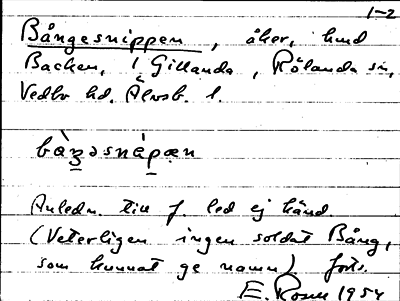 1-2
Bångesnippen, åker, hmd
Backen, 1 Gillanda, Rölanda sn,
Vedbo hd. Älvsb. l.
bàʒəsnápæn
Anledn. till f. led ej känd
(Veterligen ingen soldat Bång,
som kunnat ge namn) forts.
E. Rosen 1954